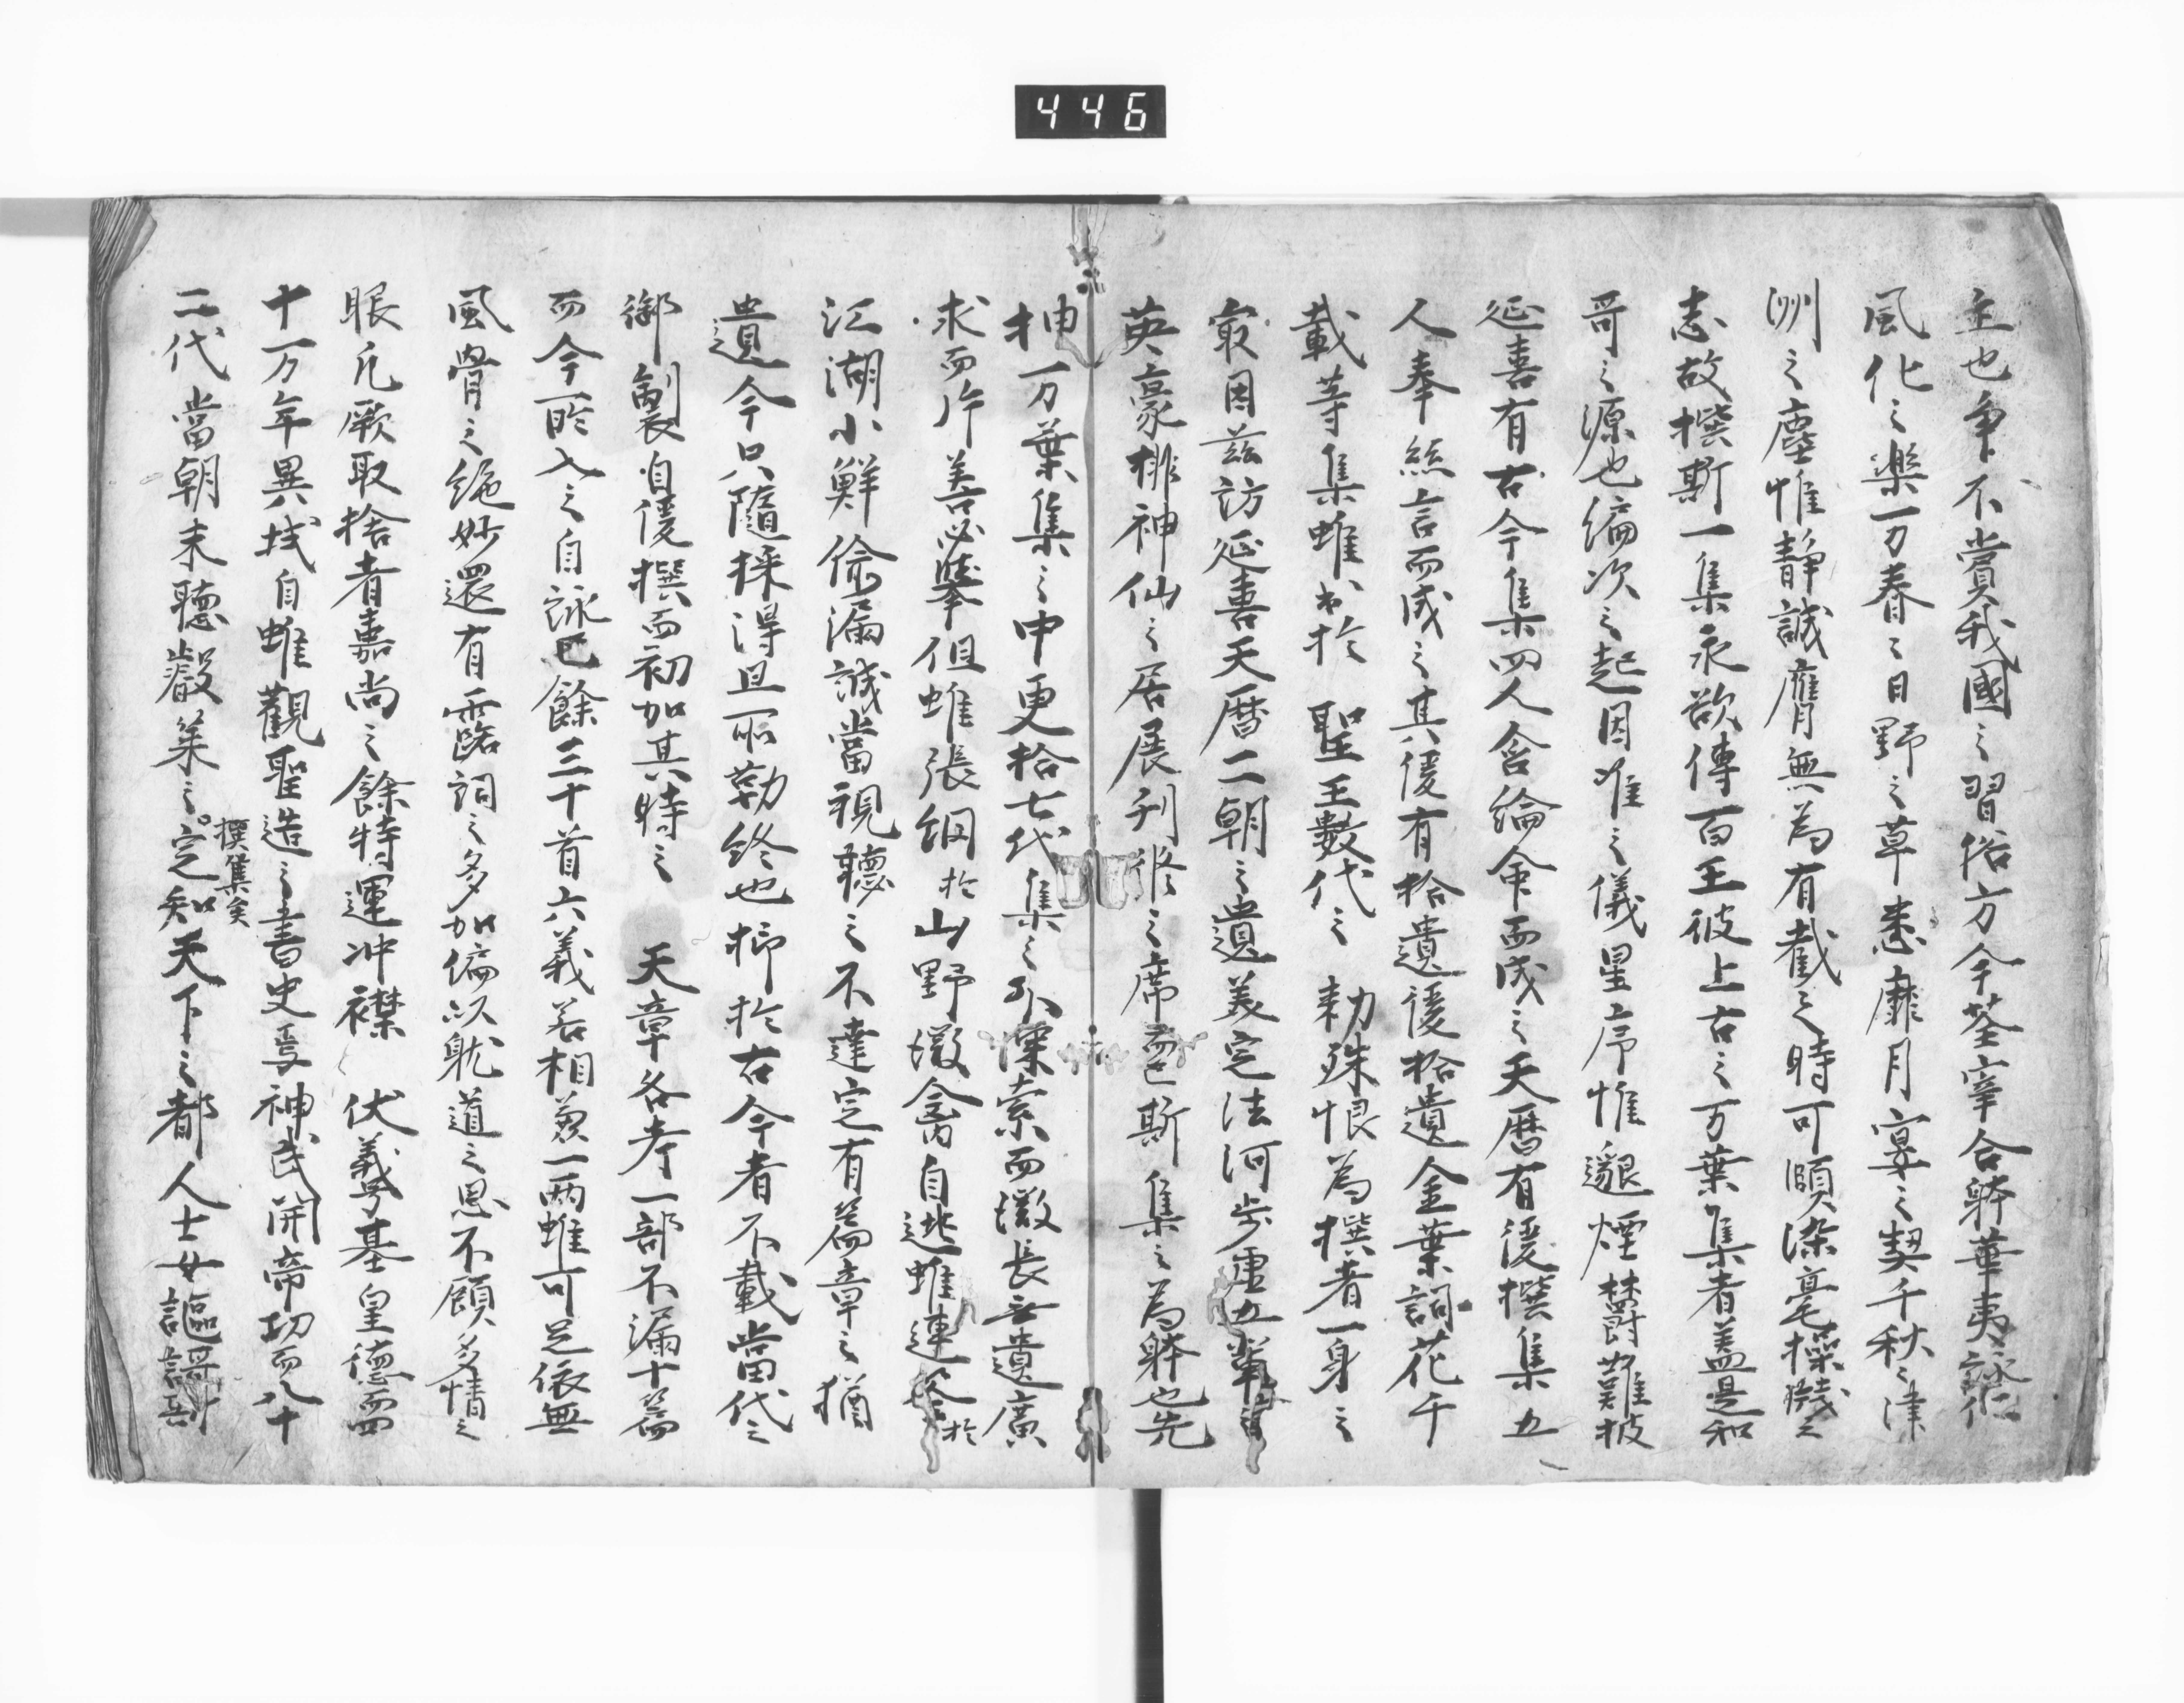 446
主也争不賞我國之習俗方今荃宰合躰華夷詠仁
風化之樂万春々日野之草悉靡月宴之契千秋々津
洲之塵惟静誠膺無為有截之時可頤染毫操牋之
志故撰斯一集永欲傳百王彼上古之万葉集者蓋是和
哥之源也編次之起因准之儀星序惟邈煙欝難披
延喜有古今集四人含綸命而成之天暦有後撰集五
人奉絲言而成之其後有拾遺後拾遺金葉詞花千
載等集雖出於　聖王數代之　勅殊恨為撰者一身之
最因茲訪延喜天暦二朝之遺美定法河歩虚五輩之
英豪排神仙之居展刊修之席而已斯集之為躰也先
抽万葉集之中更拾七代集之外深索而微長無遺廣
求而片善必擧但雖張網於山野微禽自逃雖連筌於
江湖小鮮偸漏誠當視聴之不達定有篇章之猶
遺今只隨採得且所勒終也抑於古今者不載當代之
御製自後撰而初加其時之　天章各考一部不漏十篇
而今所入之自詠已餘三十首六義若相兼一兩雖可足依無
風骨之絶妙還有露詞之多加偏以躭道之思不顧多情之
眼凡厥取捨者嘉尚之餘特運冲襟　伏羲基皇德而四
十万年異域自雖觀聖造之書史焉神武開帝功而八十
二代當朝未聽叡策之撰集矣定知天下之都人士女謳謌斯